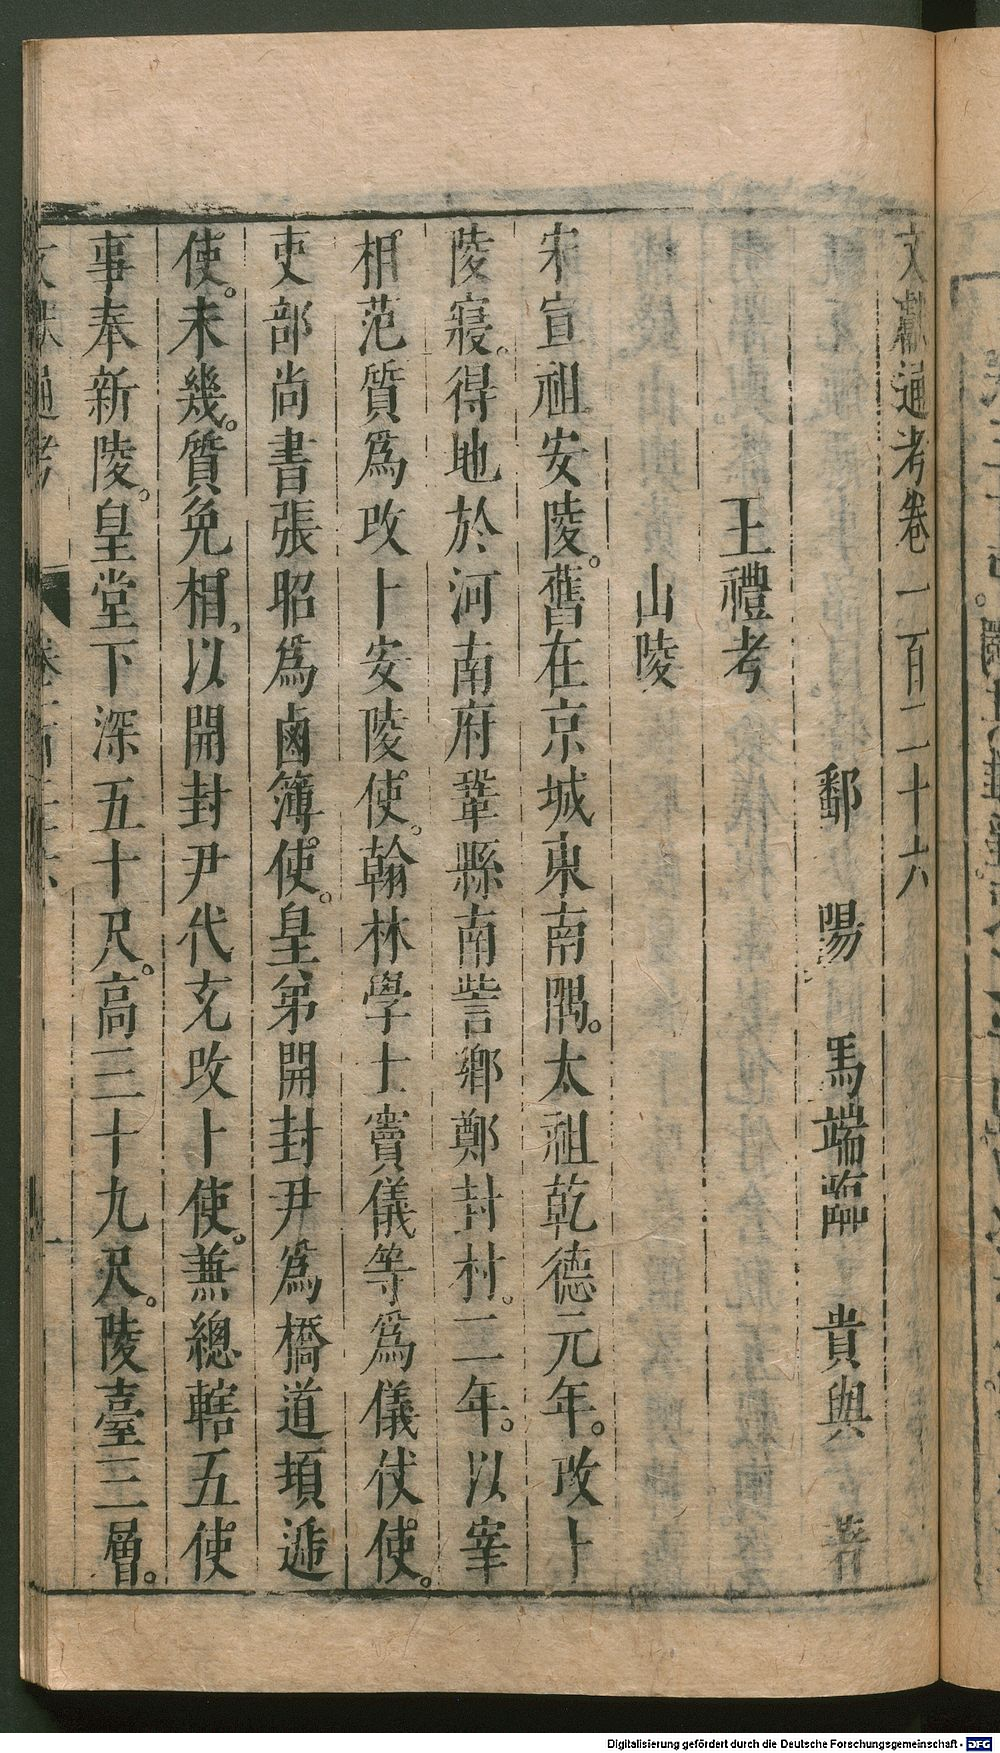 文獻通考卷一百二十六
鄱陽馬端臨貴與著
王禮考
山陵
宋宣祖安陵。舊在京城東南隅。太祖乾德元年。改卜
陵寢。得地於河南府鞏縣南訾鄉鄭封村。二年。以宰
相范質爲改卜安陵使。翰林學士竇儀等爲儀仗使。
吏部尚書張昭爲鹵簿使。皇弟開封尹爲橋道頓遞
使。未幾。質免相。以開封尹代充改卜使。兼總轄五使
事奉新陵。皇堂下深五十尺。高三十九尺。陵臺三層。
Digitalisierung gefördert durch die Deutsche Forschungsgemeinschaft - DFG